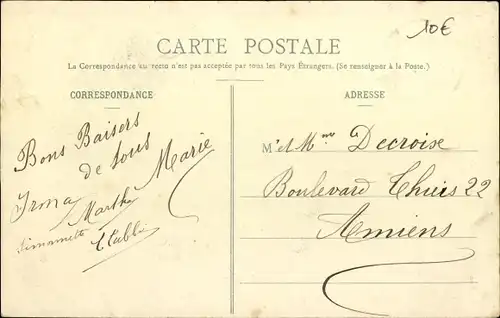 10€
CARTE POSTALE
La Correspondance au recto n'est pas acceptée par tous les Pays Étrangers. (Se renseigner à la Poste.)
CORRESPONDANCE
Bons Baisers
de tous
Irma Marthe Marie
Simonnette
ADRESSE
M et Mme Decroise
Boulevard Thiers 22
Amiens